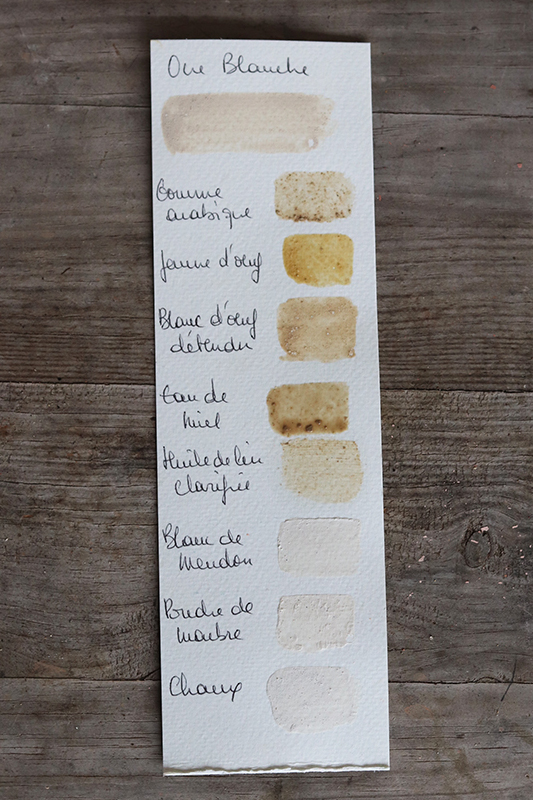 Ocre Blanche
Gomme
arabique
Jaune d'oeuf
Blanc d'oeuf
détendu
Eau de
miel
Huile de lin
clarifiée
Blanc de
Meudon
Poudre de
marbre
Chaux